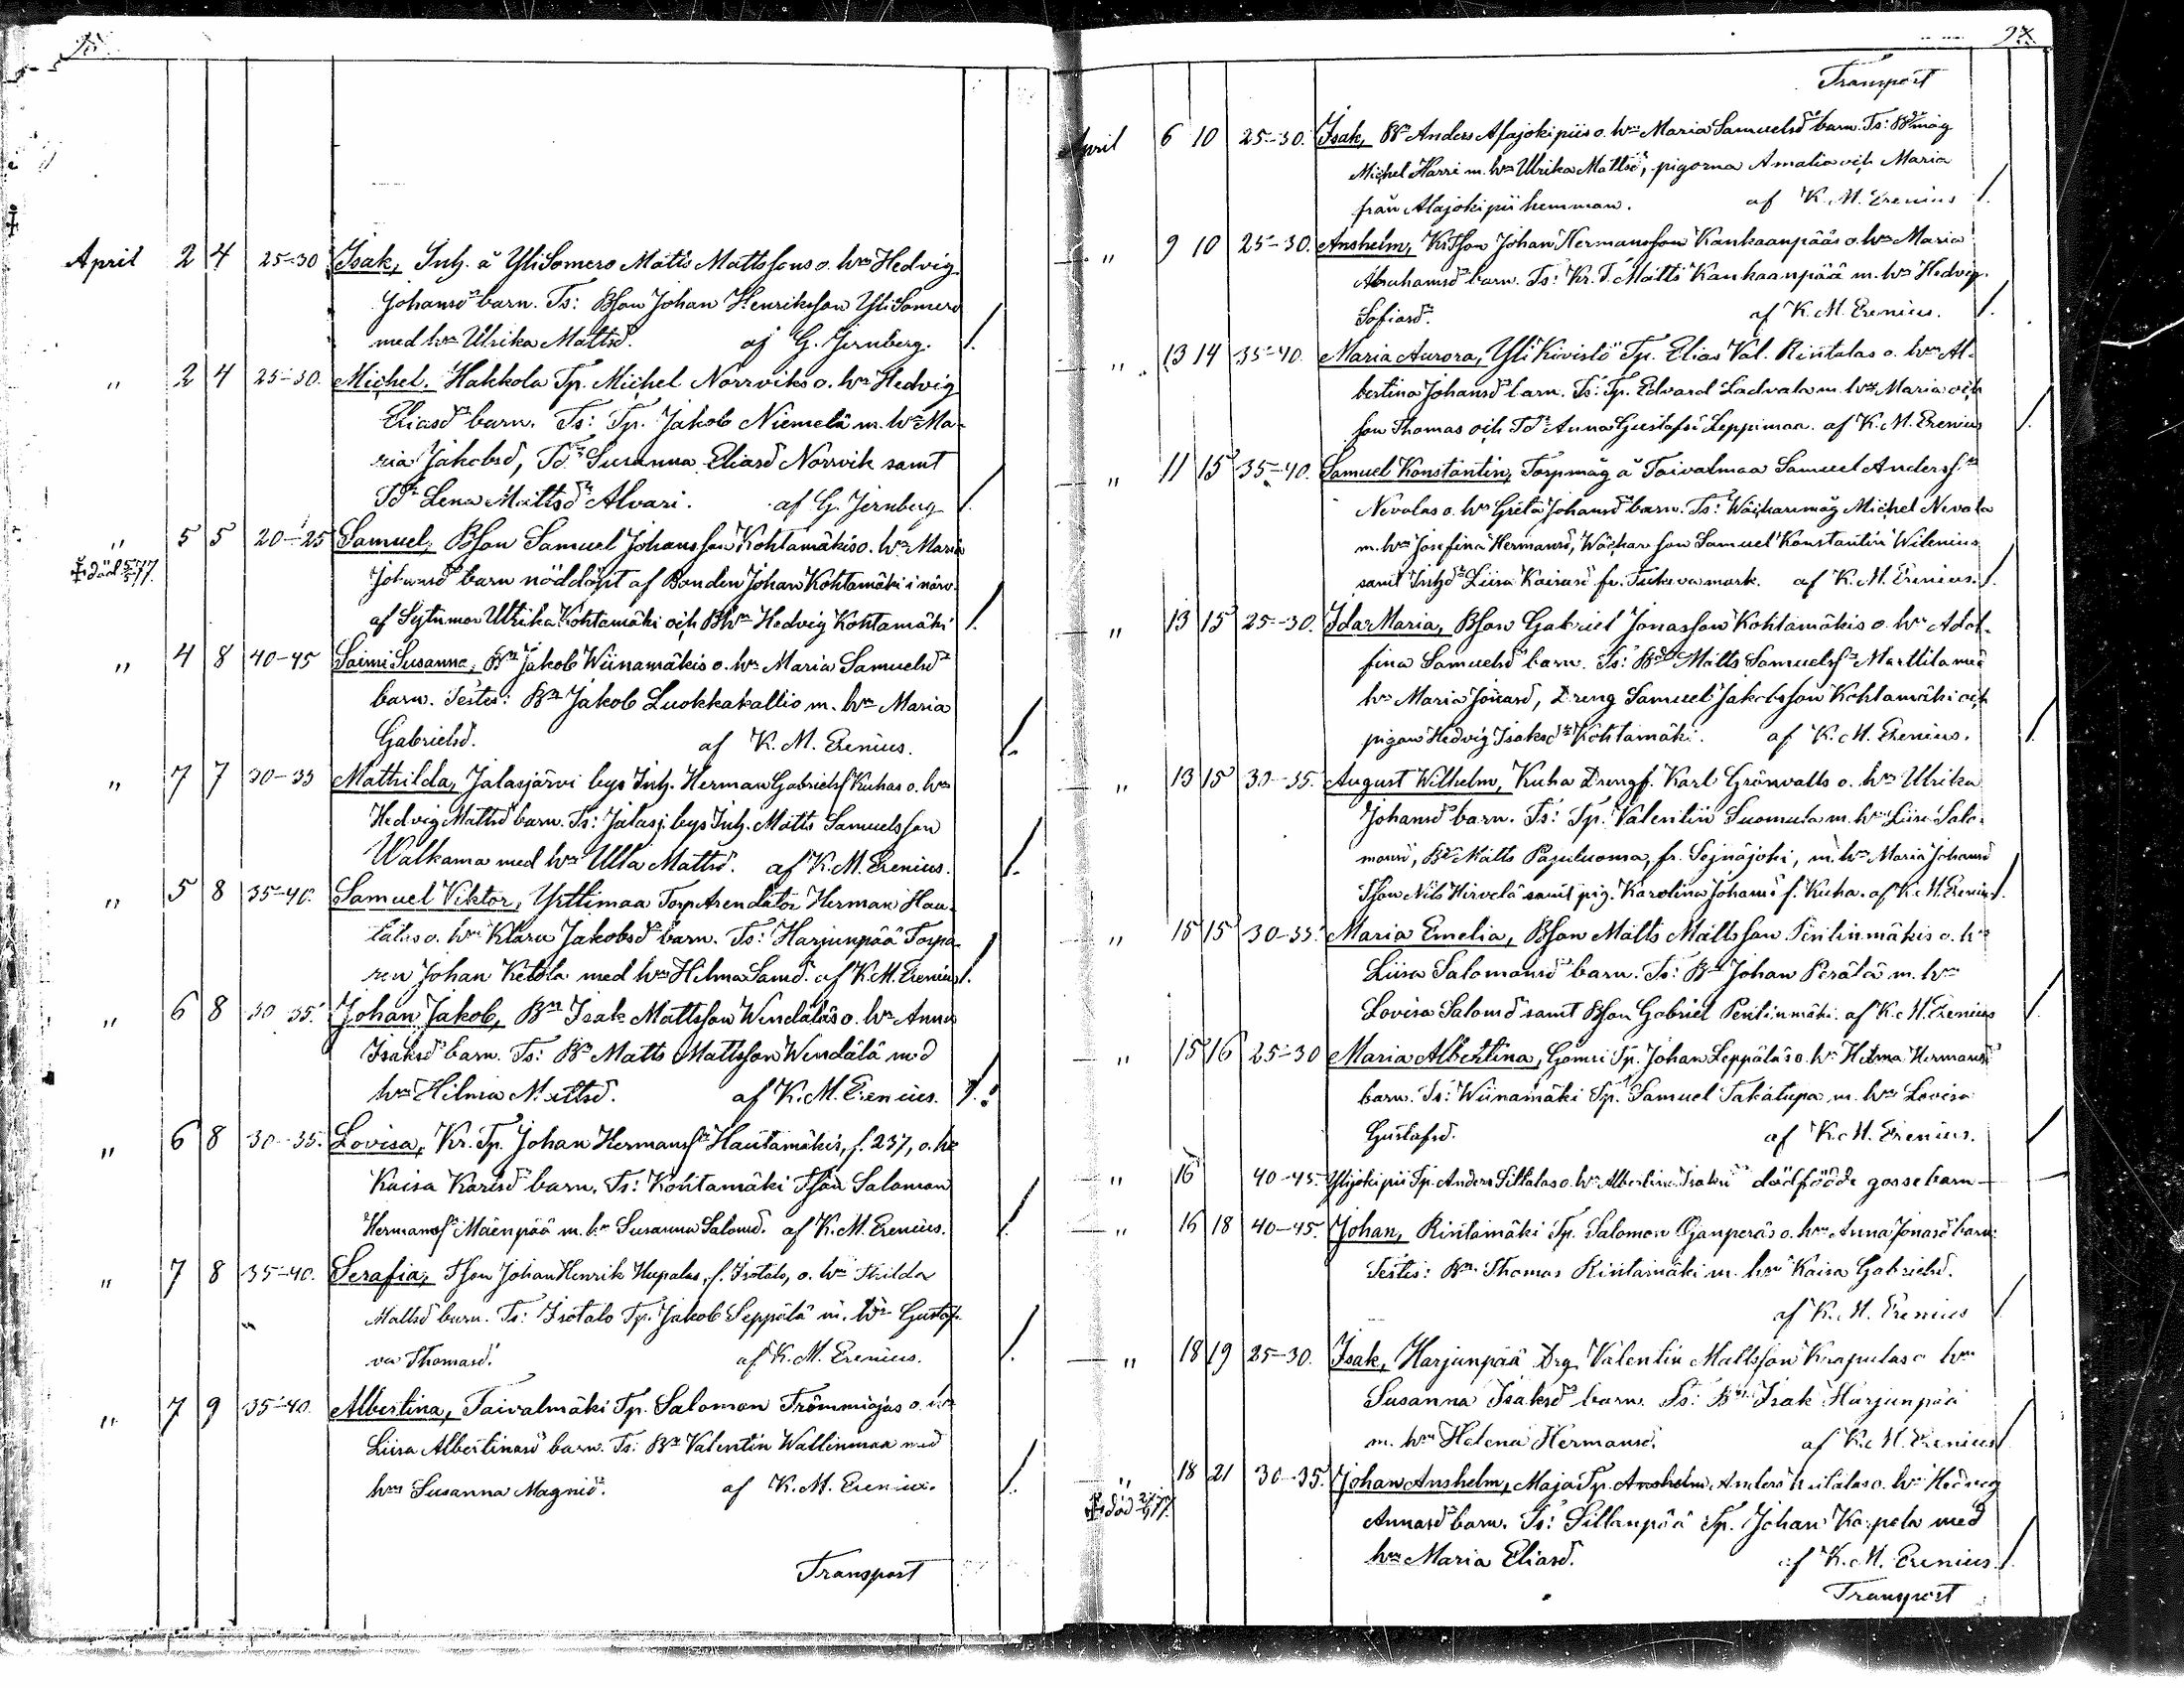 April 2 4 25-30 Isak, Inh. å YliSomero Matts Mattssons o. hu Hedvig
Johansd barn. Ts: BSon Johan Henriksson YliSomero
med hu Ulrika Mattsd. af G. Jernberg.
" 2 4 25-30. Michel. Hakkola Tp. Michel Norrviks o. hu Hedvig
Eliasd barn. Ts: Tp. Jakob Niemelä m. hu Ma-
ria Jakobsd, Td Susanna Eliasd Norrvik samt
Td Lena Mattsd Alvari. af G. Jernberg
" 5 5 20-25 Samuel, BSon Samuel Johansson Kohtamäkis o. hu Maria
‡ död 5/5 77. Johansd barn nöddöpt af Bonden Johan Kohtamäki i närv.
af Sytninsm Ulrika Kohtamäki och Bhu Hedvig Kohtamäki
" 4 8 40-45 Saimi Susanna, Bn Jakob Wiinamäkis o. hu Maria Samuelsd
barn. Testes: Bn Jakob Luokkakallio m. hu Maria
Gabrielsd. af K. M. Erenius.
" 7 7 30-35 Mathilda, Jalasjärvi bys Inh. Herman Gabrielss Kuhas o. hu
Hedvig Mattsd barn. Ts: Jalasj. bys Inh. Matts Samuelsson
Walkama med hu Ulla Mattsd. af K. M. Erenius.
" 5 8 35-40. Samuel Viktor, Yrttimaa Torp Arendator Herman Hau-
talas o. hu Klara Jakobsd barn. Ts: Harjunpää Torpa-
ren Johan Ketola med hu Hilma Samd. af K. M. Erenius
" 6 8 30-35. Johan Jakob, Bn Isak Mattsson Wendäläs o. hu Anna
Isaksd barn. Ts: Bn Matts Mattsson Wendälä med
hu Hilma Mattsd. af K. M. Erenius.
" 6 8 30-35. Lovisa, Kr. Tp. Johan Hermanss Hautamäkis, f. 237, o. hu
Kaisa Karlsd barn. Ts: Kohtamäki TSon Salomon
Hermanss Mäenpää m. hu Susanna Salomd. af K. M. Erenius.
" 7 8 35-40. Serafia, TSon Johan Henrik Hupalas, f. Isotalo, o. hu Thilda
Mattsd barn. Ts: Isotalo Tp. Jakob Seppälä m. hu Gusta-
va Thomasd. af K. M. Erenius.
" 7 9 35-40. Albertina, Taivalmäki Tp. Salomon Trömmiojas o. hu
Liisa Albertinasd barn. Ts: Bn Valentin Wallinmaa med
hu Susanna Magnid. af K. M. Erenius.
Transport
97
Transport
April 6 10 25-30. Isak, Bn Anders Alajokipiis o. hu Maria Samuelsd barn. Ts: Bdmåg
Michel Harri m. hu Ulrika Mattsd, pigorna Amalia och Maria
från Alajokipii hemman. af K. M. Erenius
" 9 10 25-30. Anshelm, KrTSon Johan Hermansson Kankaanpääs o. hu Maria
Abrahamsd barn. Ts: Kr. T. Matts Kankaanpää m. hu Hedvig
Sofiasd. af K. M. Erenius.
" 13 14 35-40. Maria Aurora, Yli Kivistö Tp. Elias Val. Rintalas o. hu Al-
bertina Johansd barn. Ts: Tp. Edvard Ladvala m. hu Maria och
Son Thomas och Td Anna Gustafsd Leppimaa. af K. M. Erenius
" 11 15 35-40. Samuel Konstantin, Torpmåg å Taivalmaa Samuel Anderss
Nevalas o. hu Greta Johansd barn. Ts: Wäcktaremåg Michel Nevala
m. hu Josefina Hermansd, Samuel Konstantin Wilenius
samt Inhd Liisa Kaisasd fr. af K. M. Erenius.
" 13 15 25-30. Ida Maria, BSon Gabriel Jonasson Kohtamäkis o. hu Adol-
fina Samuelsd barn. Ts: Bn Matts Samuelss Marttila med
hu Maria Jonasd, Dreng Samuel Jakobsson Kohtamäki och
pigan Hedvig Isaksd Kohtamäki. af K. M. Erenius.
" 13 15 30-35. August Wilhelm, Kuha Drengf. Karl Grönvalls o. hu Ulrika
Johansd barn. Ts: Tp. Valentin Suomela m. hu Liisa Salo-
monsd, Bn Matts Pajuluoma, fr. Sejnäjoki, m. hu Maria Johansd
TSon Nils Hirvelä samt pig. Karolina Johansd f. Kuha. af K. M. Erenius.
" 15 15 30-35. Maria Emelia, BSon Matts Mattsson Pentinmäkis o. hu
Liisa Salomonsd barn. Ts: Bn Johan Perälä m. hu
Lovisa Salomd samt BSon Gabriel Pentinmäki. af K. M. Erenius
" 15 16 25-30 Maria Albertina, Gomri Tp. Johan Leppäläs o. hu Helma Hermansd
barn. Ts: Wiinamäki Tp. Samuel Takatupa m. hu Lovisa
Gustafsd. af K. M. Erenius.
" 16 40-45. Ylijokipii Tp. Anders Siltalas o. hu Albertina Isaksd dödfödde gossebarn
" 16 18 40-45. Johan, Rintamäki Tp. Salomon Ojanperäs o. hu Anna Jonasd barn.
Testis: Bn Thomas Rintamäki m. hu Kaisa Gabrielsd.
af K. M. Erenius
" 18 19 25-30. Isak, Harjunpää Drg. Valentin Mattsson Knapulas o hu
Susanna Isaksd barn. Ts: Bn Isak Harjunpää
m. hu Helena Hermansd. af K. M. Erenius
" 18 21 30-35. Johan Anshelm, Maja Tp. Anshelm Anders o. hu Hedvig
‡ död 77. Annasd barn. Ts: Sillanpää Tp. Johan Karpela med
hu Maria Eliasd. af K. M. Erenius.
Transport